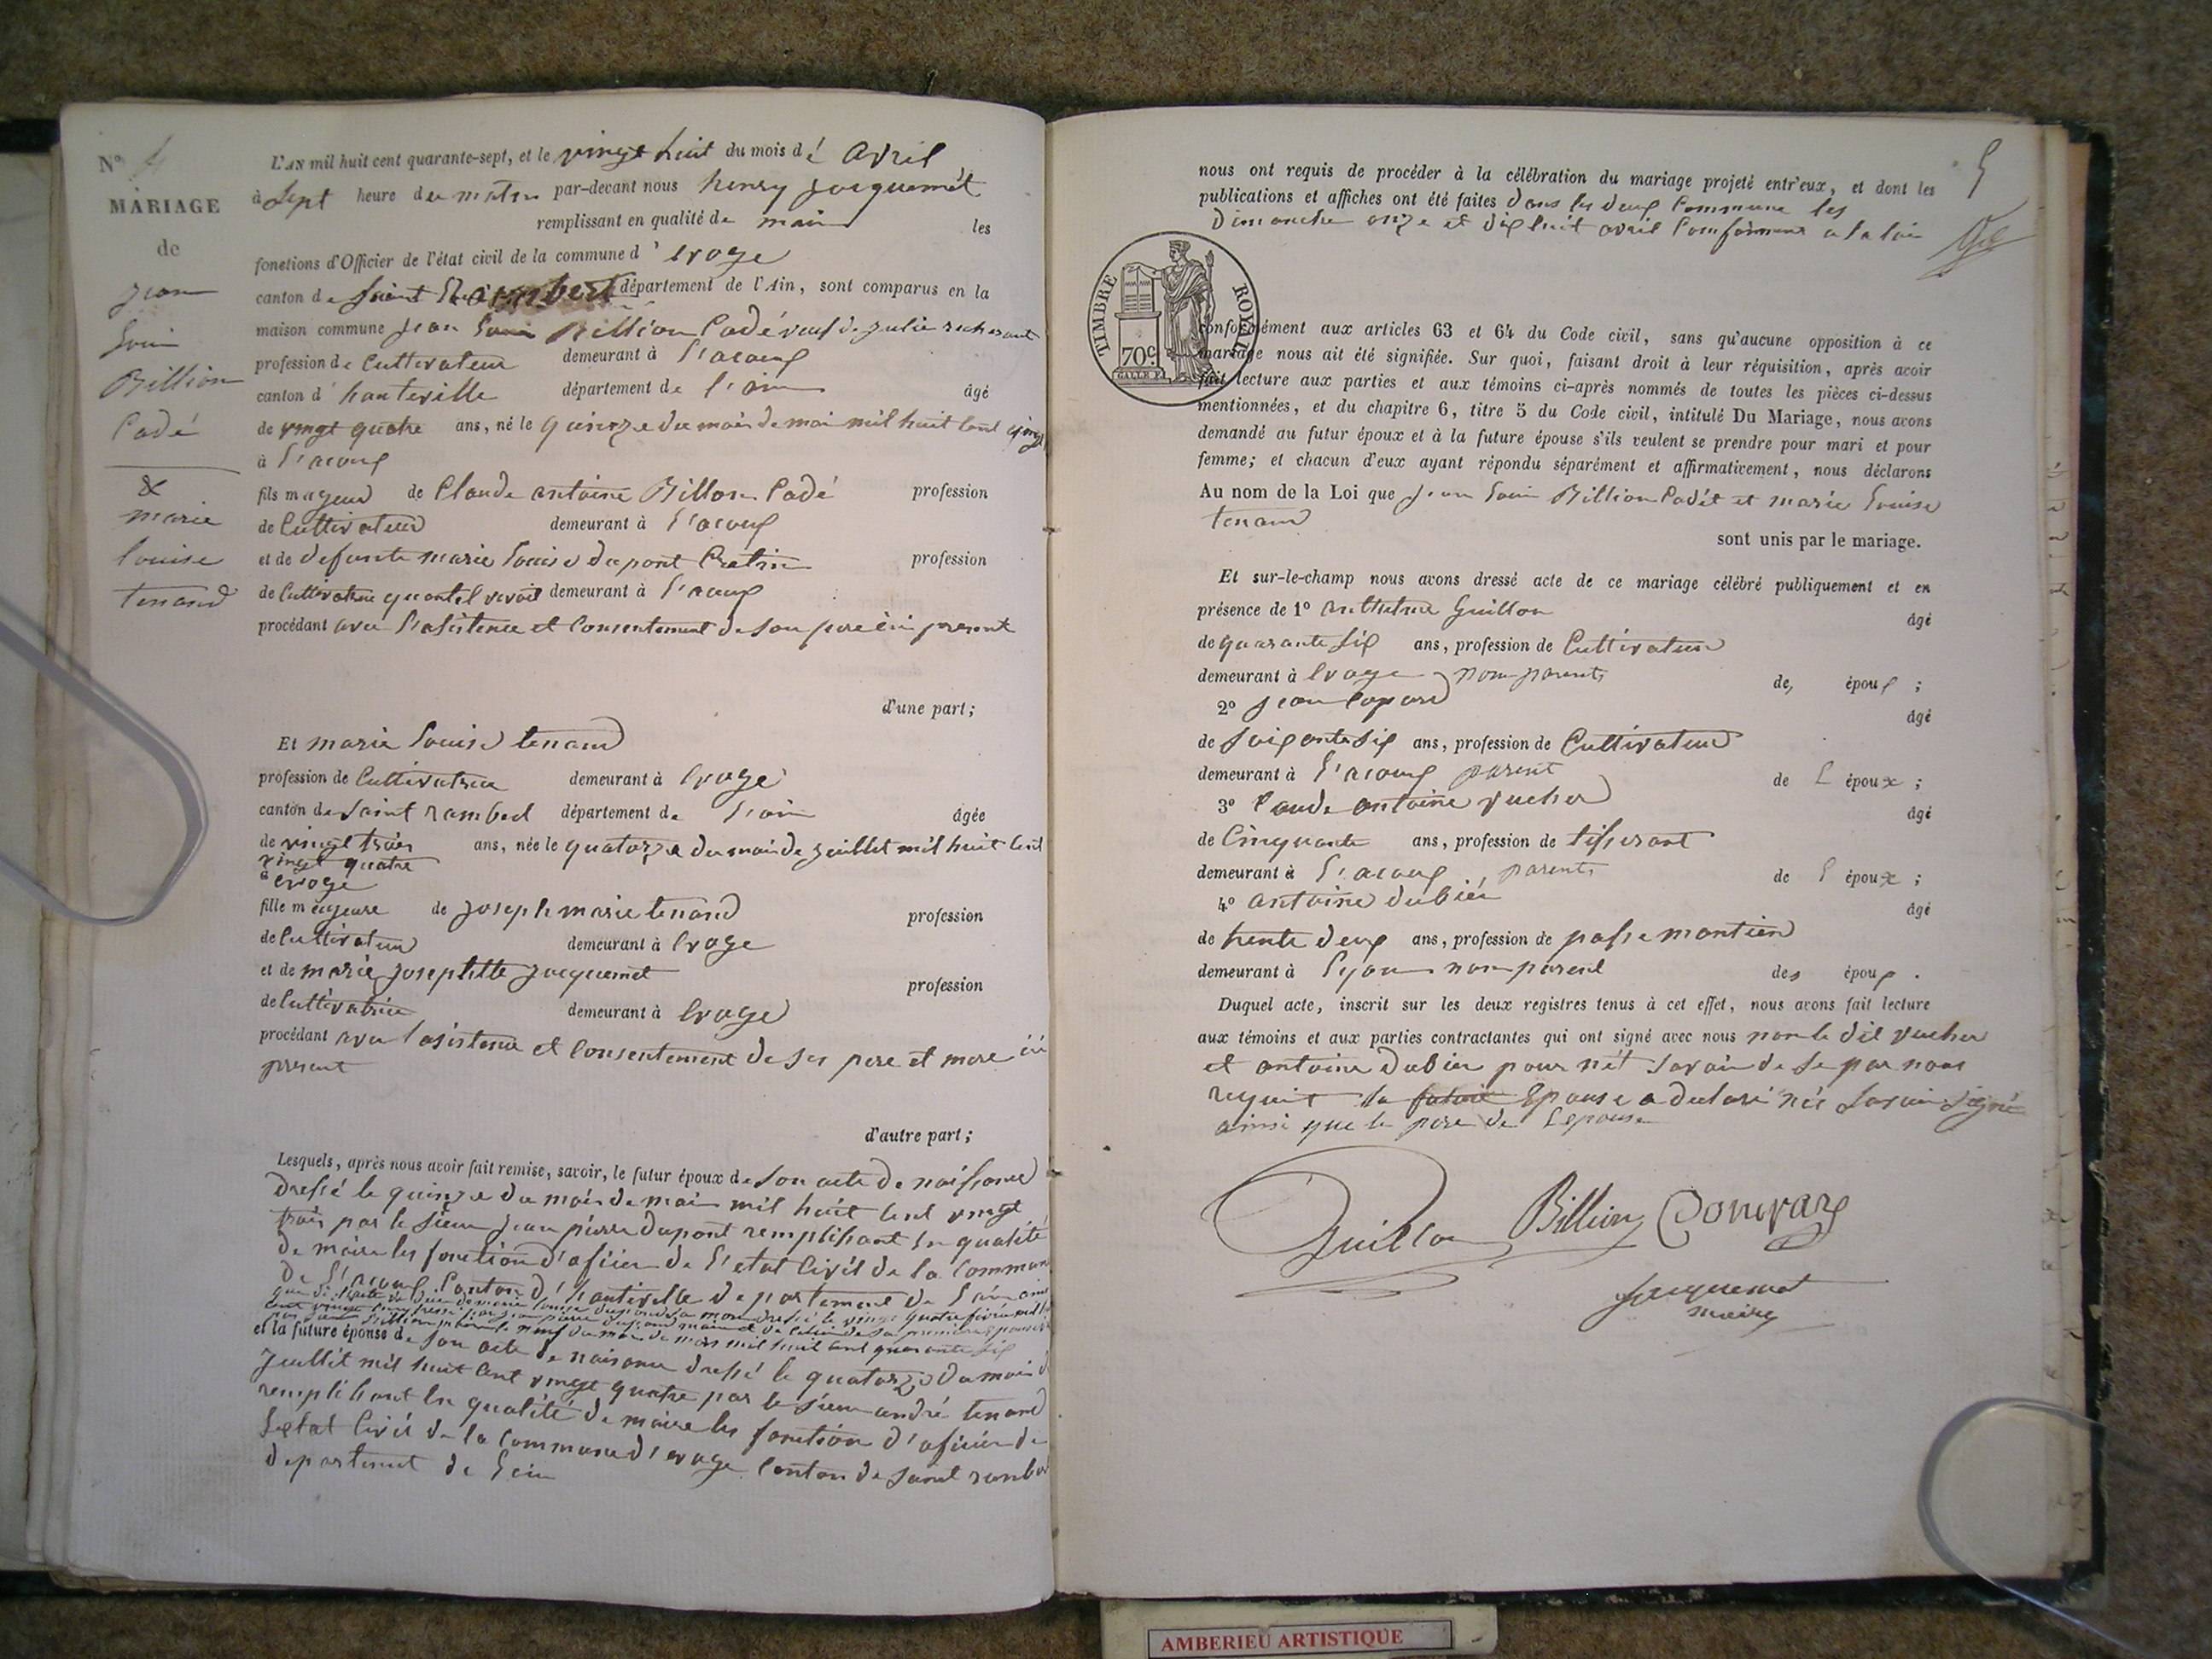 N° 4
MARIAGE
de
jean
Louis
Billion
Cadé
&
marie
louise
tenand
L'AN mil huit cent quarante-sept, et le vingt huit du mois dé Avril
à Sept heure du matin par-devant nous henry jacquemét
remplissant en qualité de maire les
fonctions d'Officier de l'état civil de la commune d' évoge
canton de Saint Rambert département de l'Ain, sont comparus en la
maison commune jean Louis Billion Cadé veuf de julie
profession de Cultivateur demeurant à l'acoux
canton d' hauteville département de l'ain âgé
de vingt quatre ans, né le quinze du mois de mai mil huit cent vingt
à l'acoux
fils mageur de Claude antoine Billon Cadé profession
de Cultivateur demeurant à l'acoux
et de defunte marie Louise dupont Cretin profession
de Cultivatrice quantel vivoit demeurant à l'acoux
procédant avec l'asistence et Consentement de son pere ici present
d'une part;
Et marie Louise tenand
profession de Cultivatrice demeurant à évoge
canton de Saint rambert département de l'ain âgée
de vingt trois ans, née le quatorze du mois de juillet mil huit cent
vingt quatre
à evoge
fille mageure de joseph marie tenand profession
de Cultivateur demeurant à évoge
et de marie josephtte jacquemet profession
de Cultivatrice demeurant à évoge
procédant avec l'asistence et Consentement de ses pere et mere ici
present
d'autre part;
Lesquels, après nous avoir fait remise, savoir, le futur époux de son acte de naissance
dressé le quinze du mois de mai mil huit cent vingt
trois par le sieur jean pierre dupont remplissant en qualité
de maire les fonction d'oficier de l'etat Civil de la Commune
de l'acoux Canton d'hauteville departement de l'ain
et la future épouse de son acte de naisance dressé le quatorze du mois de
juillet mil huit cent vingt quatre par le sieur andré tenand
remplisant en qualité de maire les fonction d'oficier de
Letat Civil de la Commune d'evoge Canton de saint
departement de l'ain
5
nous ont requis de procéder à la célébration du mariage projeté entr'eux, et dont les
publications et affiches ont été faites dans les deux Commune les
dimanche onze et dix huit avril Conformement a la loi
TIMBRE ROYAL
70c.
conformément aux articles 63 et 64 du Code civil, sans qu'aucune opposition à ce
mariage nous ait été signifiée. Sur quoi, faisant droit à leur réquisition, après avoir
fait lecture aux parties et aux témoins ci-après nommés de toutes les pièces ci-dessus
mentionnées, et du chapitre 6, titre 5 du Code civil, intitulé Du Mariage, nous avons
demandé au futur époux et à la future épouse s'ils veulent se prendre pour mari et pour
femme; et chacun d'eux ayant répondu séparément et affirmativement, nous déclarons
Au nom de la Loi que jean Louis Billion Cadét et marie Louise
tenand
sont unis par le mariage.
Et sur-le-champ nous avons dressé acte de ce mariage célébré publiquement et en
présence de 1° Guillon âgé
de quarante six ans, profession de Cultivateur
demeurant à évoge non parents des époux ;
2° jean âgé
de soixante six ans, profession de Cultivateur
demeurant à l'acoux parent de L époux ;
3° Claude antoine vucher âgé
de Cinquante ans, profession de tisserant
demeurant à l'acoux parents de l époux ;
4° antoine dubier âgé
de trente deux ans, profession de passemantier
demeurant à Lyon non parent des époux .
Duquel acte, inscrit sur les deux registres tenus à cet effet, nous avons fait lecture
aux témoins et aux parties contractantes qui ont signé avec nous non le dit vucher
et antoine dubier pour nét savoir de se par nous
requit la future Epouse a declaré née savoir signé
ainsi que le pere de Lepouse
Guillon Billion
jacquemet
maire
AMBERIEU ARTISTIQUE